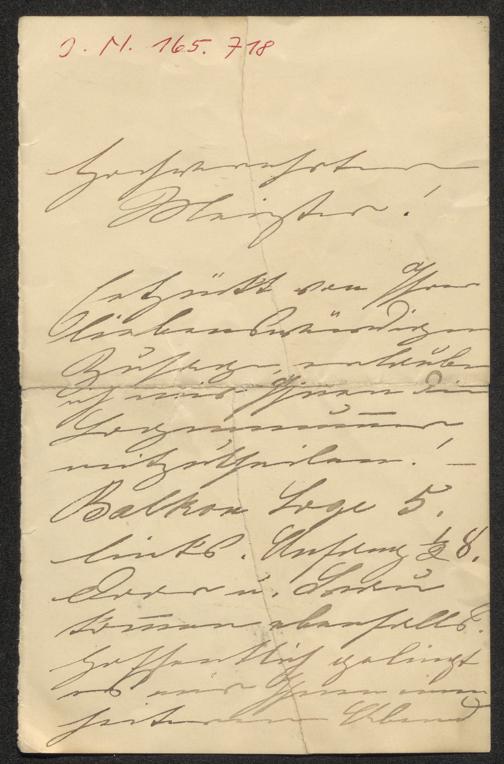 J. N. 165.718
Hochverehrter
Meister!
Entzückt von Ihrer
liebenswürdigen
Zusage, erlaube
ich mir Ihnen die
Logennummer
mitzutheilen! —
Balkon Loge 5.
links. Anfang ½ 8.
u. Frau
kommen ebenfalls.
Hoffentlich gelingt
es uns Ihnen einen
heiteren Abend